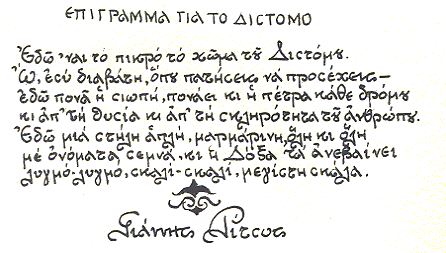 ΕΠΙΓΡΑΜΜΑ ΓΙΑ ΤΟ ΔΙΣΤΟΜΟ
Ἐδῶ 'ναι τὸ πικρὸ τὸ χῶμα τοῦ Διστόμου.
Ὤ, ἐσὺ διαβάτη, ὅπου πατήσεις νὰ προσέχεις –
ἐδῶ πονᾶ ἡ σιωπή, πονάει κι ἡ πέτρα κάθε δρόμου
κι ἀπ' τὴ θυσία κι ἀπ' τὴ σκληρότητα τοῦ ἀνθρώπου.
Ἐδῶ μιὰ στήλη ἁπλή, μαρμάρινη, ὅλη κι ὅλη
μὲ ὀνόματα σεμνά, κι ἡ Δόξα τὰ ἀνεβαίνει
λυγμὸ-λυγμό, σκαλὶ-σκαλί, μεγίστη σκάλα.
Γιάννης Ρίτσος